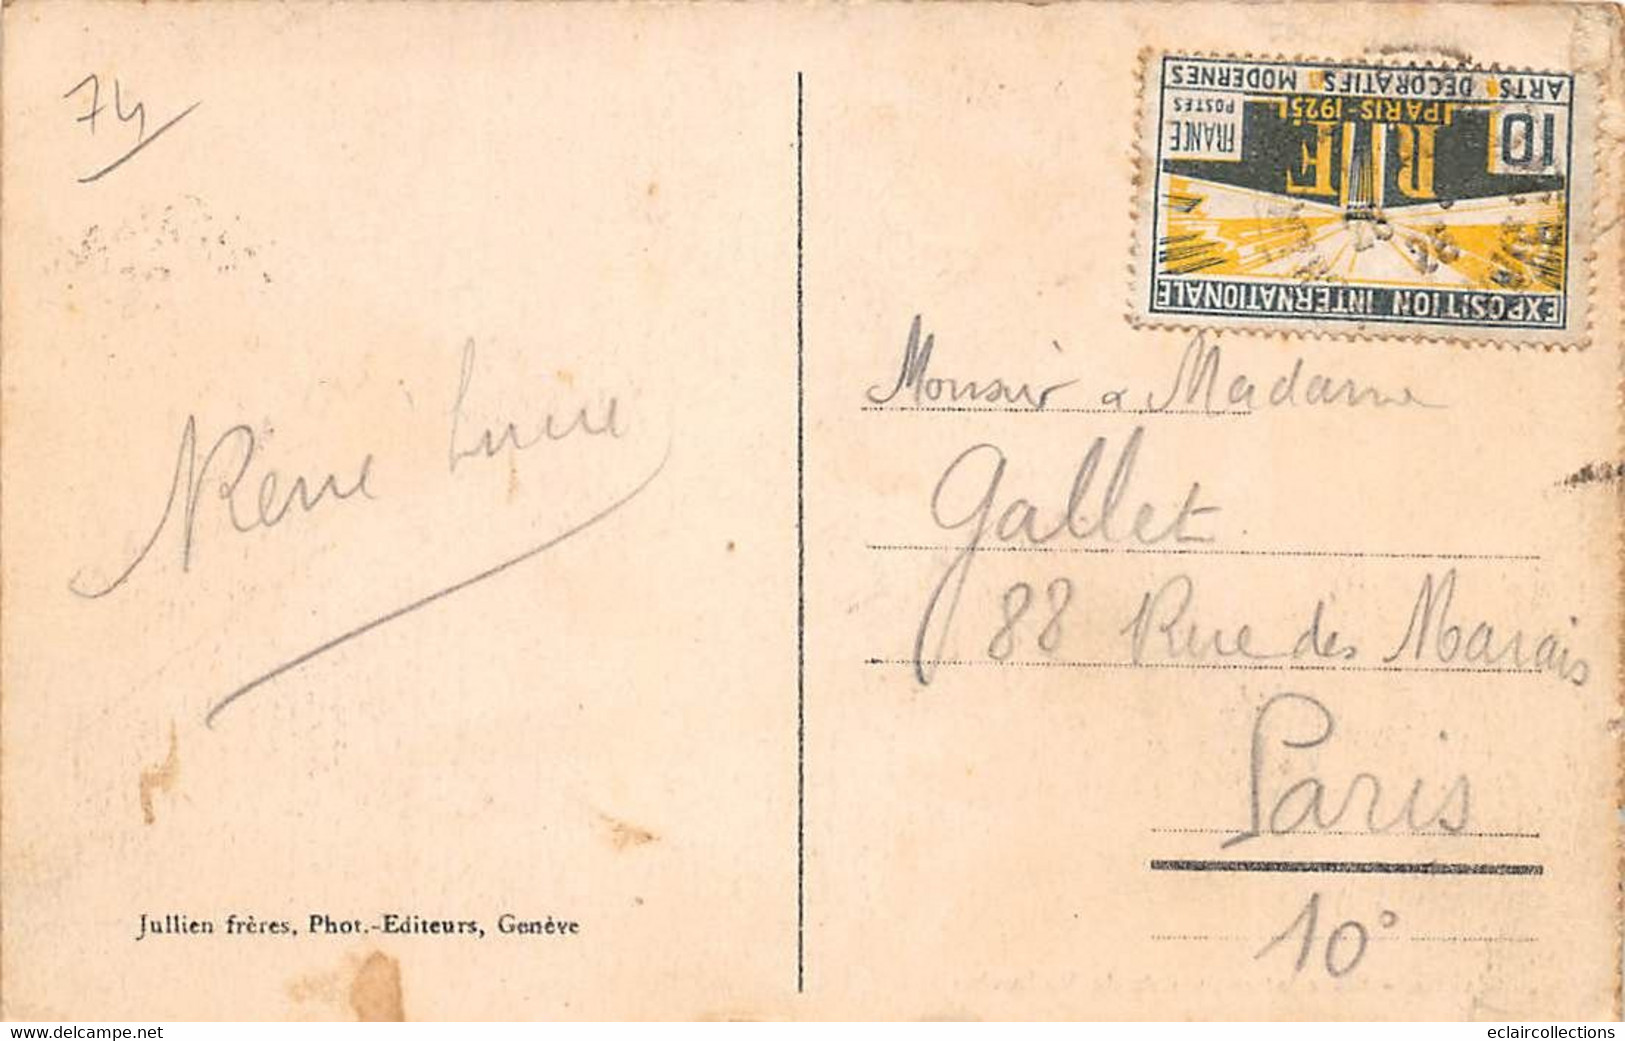 74
ARTS DÉCORATIFS MODERNES
PARIS-1925
10
RF
FRANCE
POSTES
EXPOSITION INTERNATIONALE
René Lucie
Jullien frères, Phot.-Editeurs, Genève
Monsieur & Madame
Gallet
88 Rue des Marais
Paris
10º
eclaircollections
www.delcampe.net